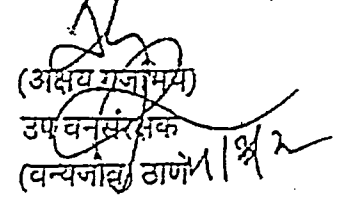 (अक्षय गजभिये)
उप वनसंरक्षक
(वन्यजीव) ठाणे